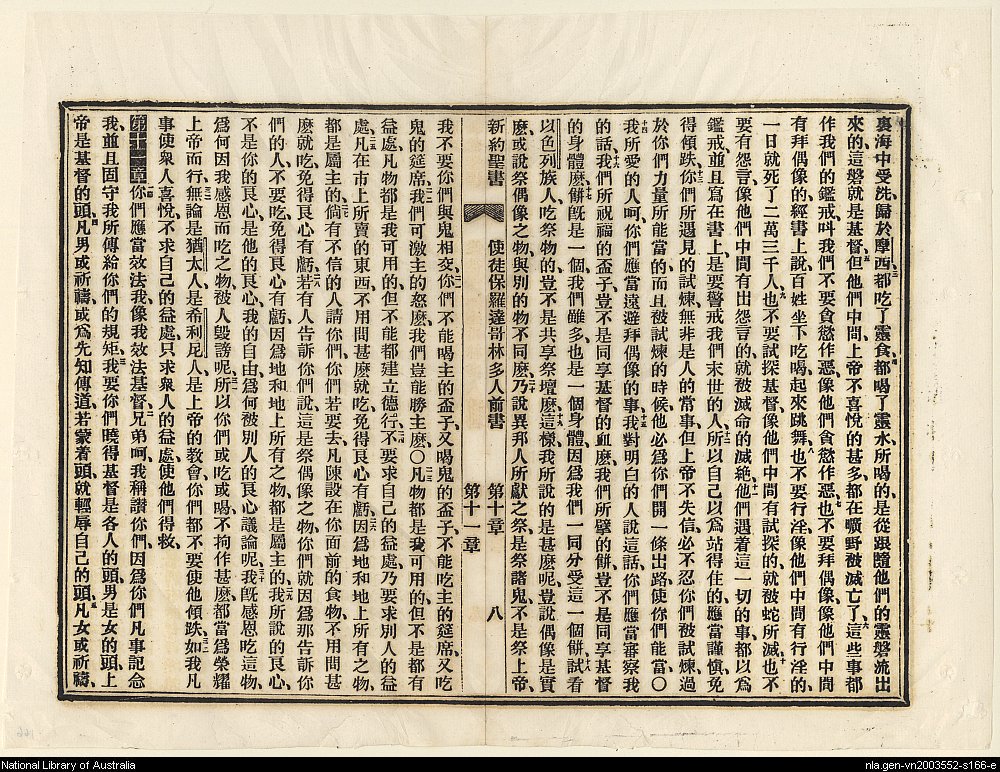 裏海中受洗歸於摩西、三都吃了靈食、四都喝了靈水、所喝的、是從跟隨他們的靈磐流出
來的、這磐就是基督、五但他們中間、上帝不喜悅的甚多、都在曠野被滅亡了、六這些事都
作我們的鑑戒、叫我們不要貪慾作惡、像他們貪慾作惡、七也不要拜偶像、像他們中間
有拜偶像的、經書上說、百姓坐下吃喝、起來跳舞、八也不要行淫、像他們中間有行淫的、
一日就死了二萬三千人、九也不要試探基督、像他們中間有試探的、就被蛇所滅、十也不
要有怨言、像他們中間有出怨言的、就被滅命的滅絕、十一他們遇着這一切的事、都以爲
鑑戒、並且寫在書上、是要警戒我們末世的人、十二所以自己以爲站得住的、應當謹慎、免
得傾跌、十三你們所遇見的試煉、無非是人的常事、但上帝不失信、必不忍你們被試煉、過
於你們力量所能當的、而且被試煉的時候、他必爲你們開一條出路、使你們能當、〇
十四我所愛的人呵、你們應當遠避拜偶像的事、十五我對明白的人說這話、你們應當審察我
的話、十六我們所祝福的盃子、豈不是同享基督的血麼、我們所擘的餅、豈不是同享基督
的身體麼、十七餅旣是一個、我們雖多、也是一個身體、因爲我們一同分受這一個餅、十八試看
以色列族人、吃祭物的、豈不是共享祭壇麼、十九這樣我所說的是甚麼呢、豈說偶像是實
麼、或說祭偶像之物、與別的物不同麼、二十乃說異邦人所獻之祭、是祭諸鬼、不是祭上帝、
新約聖書 使徒保羅達哥林多人前書 第十章 第十一章 八
我不要你們與鬼相交、二一你們不能喝主的盃子、又喝鬼的盃子、不能吃主的筵席、又吃
鬼的筵席、二二我們可激主的怒麼、我們豈能勝主麼、〇二三凡物都是我可用的、但不是都有
益處、凡物都是我可用的、但不能都建立德行、二四不要求自己的益處、乃要求別人的益
處、二五凡在市上所賣的東西、不用問甚麼就吃、免得良心有虧、二六因爲地和地上所有之物、
都是屬主的、二七倘有不信的人請你們、你們若要去、凡陳設在你面前的食物、不用問甚
麼就吃、免得良心有虧、二八若有人告訴你們說、這是祭偶像之物、你們就因爲那告訴你
們的人、不要吃、免得良心有虧、因爲地和地上所有之物、都是屬主的、二九我所說的良心、
不是你的良心、是他的良心、我的自由、爲何被別人的良心議論呢、三十我旣感恩吃這物、
爲何因我感恩而吃之物被人毀謗呢、三一所以你們或吃、或喝、不拘作甚麼、都當爲榮耀
上帝而行、三二無論是猶太人、是希利尼人、是上帝的教會、你們都不要使他傾跌、三三如我凡
事使衆人喜悅、不求自己的益處、只求衆人的益處、使他們得救、
第十一章 你們應當效法我、像我效法基督、二兄弟呵、我稱讚你們、因爲你們凡事記念
我、並且固守我所傳給你們的規矩、三我要你們曉得基督是各人的頭、男是女的頭、上
帝是基督的頭、四凡男或祈禱、或爲先知傳道、若蒙着頭、就輕辱自己的頭、五凡女或祈禱、
National Library of Australia
nla.gen-vn2003552-s166-e